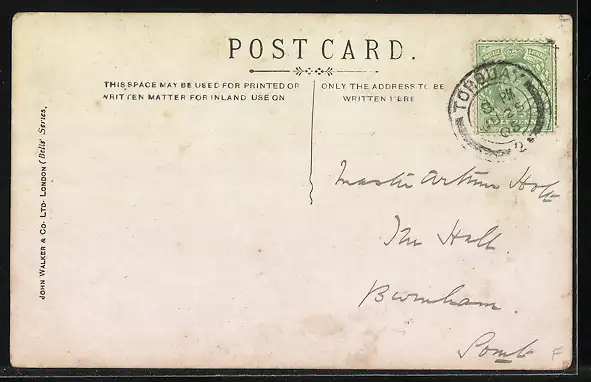 POST CARD.
THIS SPACE MAY BE USED FOR PRINTED OR
WRITTEN MATTER FOR INLAND USE ON
ONLY THE ADDRESS TO BE
WRITTEN HERE
TORQUAY
2
JOHN WALKER & CO. LTD. LONDON (Bells' Series.
Master Arthur Holt
The Hall
Burnham.
Somt
F